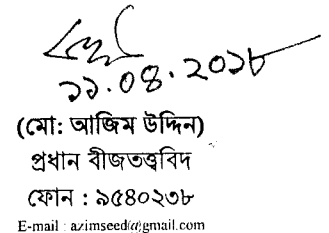 ১১.০৪.২০১৮
(মো: আজিম উদ্দিন)
প্রধান বীজতত্ত্ববিদ
ফোন : ৯৫৪০২৩৮
E-mail : azimseed@gmail.com